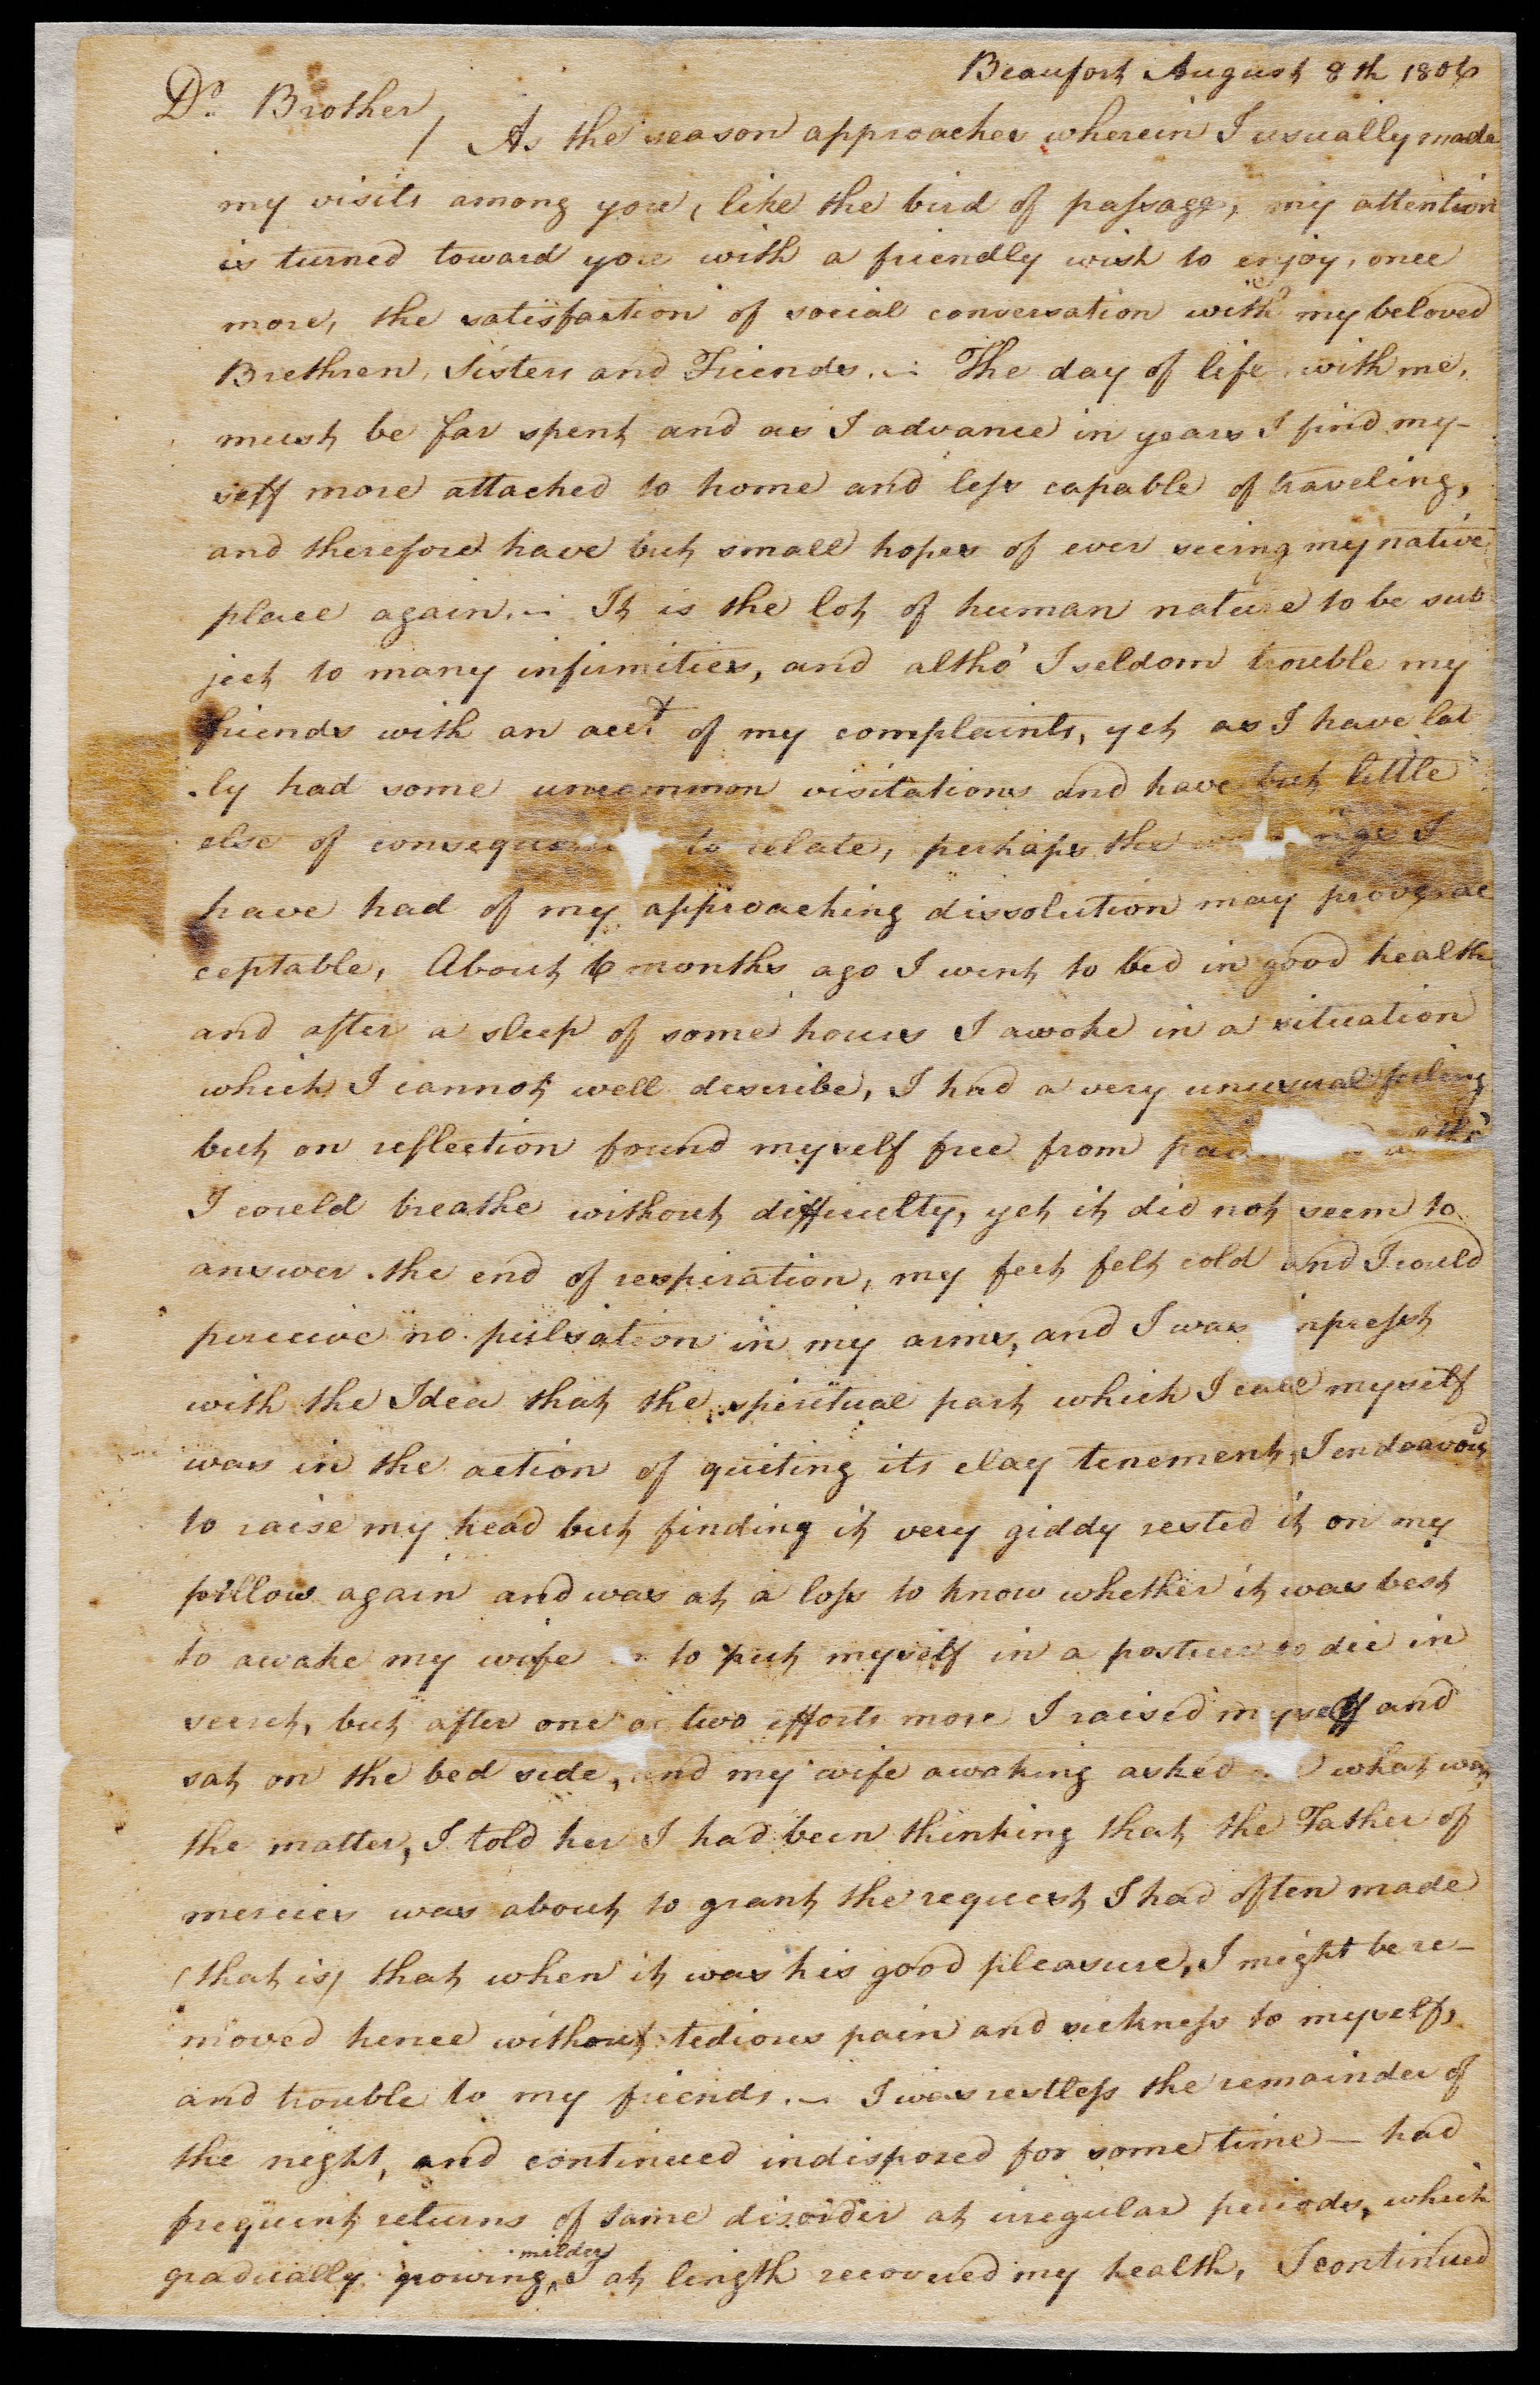 Beaufort August 8th 1806
Dr. Brother,
As the season approaches wherein I usually made
my visits among you, like the bird of passage, my attention
is turned toward you with a friendly wish to enjoy, once
more, the satisfaction of social conversation with my beloved
Brethren, Sisters and Friends. — The day of life, with me,
must be far spent and as I advance in years I find my-
self more attached to home and less capable of traveling,
and therefore have but small hopes of ever seeing my native
place again. — It is the lot of human nature to be sub
ject to many infirmities, and altho' I seldom trouble my
friends with an acct. of my complaints, yet as I have lat
ly had some uncommon visitations and have but little
else of to relate, perhaps the I
have had of my approaching dissolution may prove ac
ceptable, About 6 months ago I went to bed in good health
and after a sleep of some hours I awoke in a situation
which I cannot well describe, I had a very unusual feeling
but on reflection found myself free from altho'
I could breathe without difficulty, yet it did not seem to
answer the end of respiration, my feet felt cold and I could
perceive no pulsation in my arms, and I was imprest
with the Idea that the spiritual part which I call myself
was in the action of quiting its clay tenement, I endeavour'd
to raise my head but finding it very giddy rested it on my
pillow again and was at a loss to know whether it was best
to awake my wife or to put myself in a posture to die in
secret, but after one or two efforts more I raised myself and
sat on the bed side, and my wife awaking asked me what was
the matter, I told her I had been thinking that the Father of
mercies was about to grant the request I had often made
(that is) that when it was his good pleasure, I might be re-
moved hence without tedious pain and sickness to myself,
and trouble to my friends. — I was restless the remainder of
the night, and continued indisposed for some time — had
frequent returns of same disorder at irregular periods, which
gradually growing ^milder I at length recovered my health, I continued